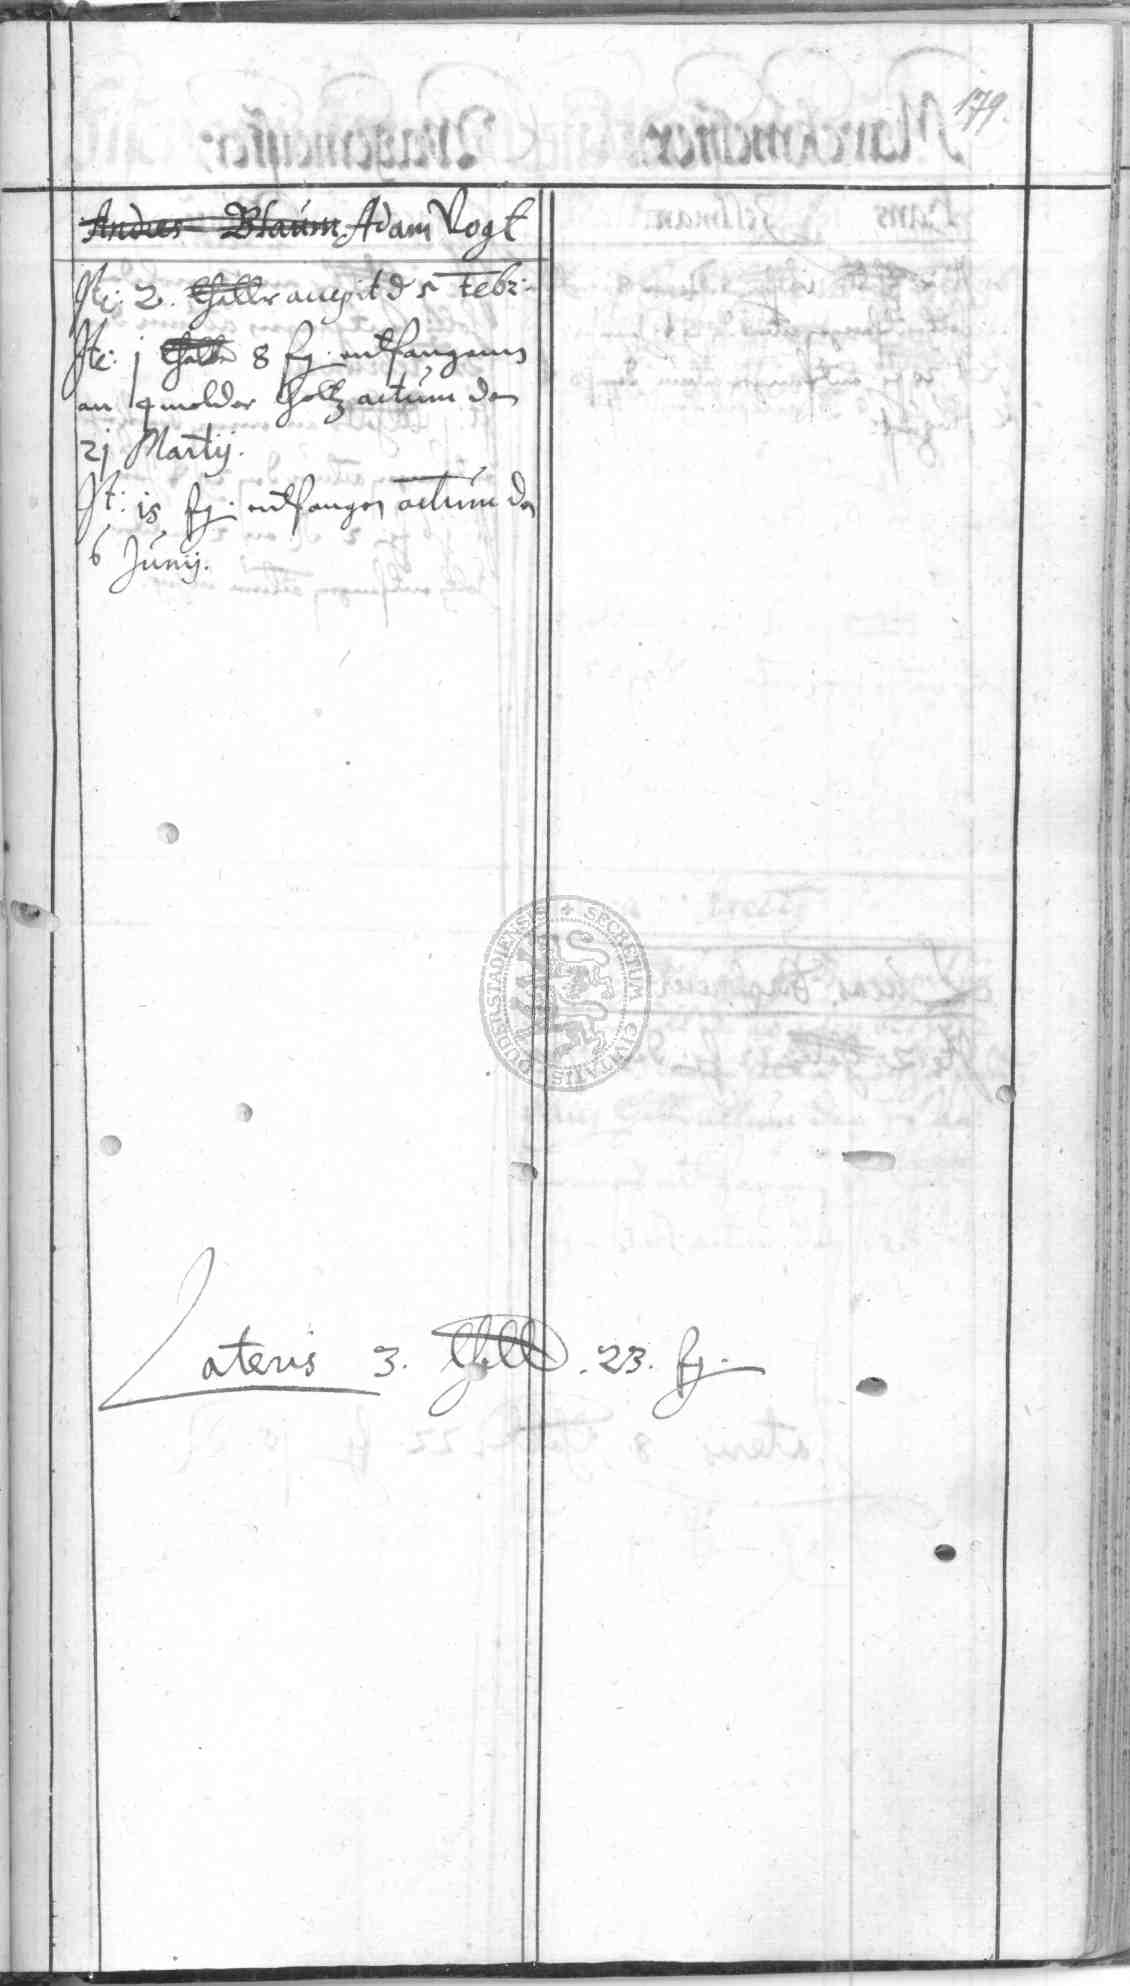 179.
Andres Blaum Adam Vogt
It: 2. thallr accepit d 5 Febr:
It: j thallr 8 fg. entfangenn
an 4 molder holtz actum den
2j Martij.
It: is fg. entfangen actum den
6 Junij.
Lateris 3. thall. 23. fg.
SECRETUM CIVITATIS DUDERSTADIENSIS